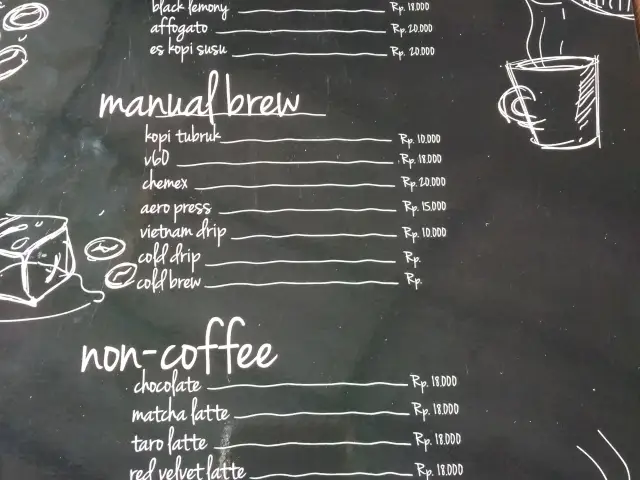 black lemony Rp. 18.000
affogato Rp. 20.000
es kopi susu Rp. 20.000
manual brew
kopi tubruk Rp. 10.000
v60 Rp. 18.000
chemex Rp. 20.000
aero press Rp. 15.000
vietnam drip Rp. 10.000
cold drip Rp.
cold brew Rp.
non-coffee
chocolate Rp. 18.000
matcha latte Rp. 18.000
taro latte Rp. 18.000
red velvet latte Rp. 18.000